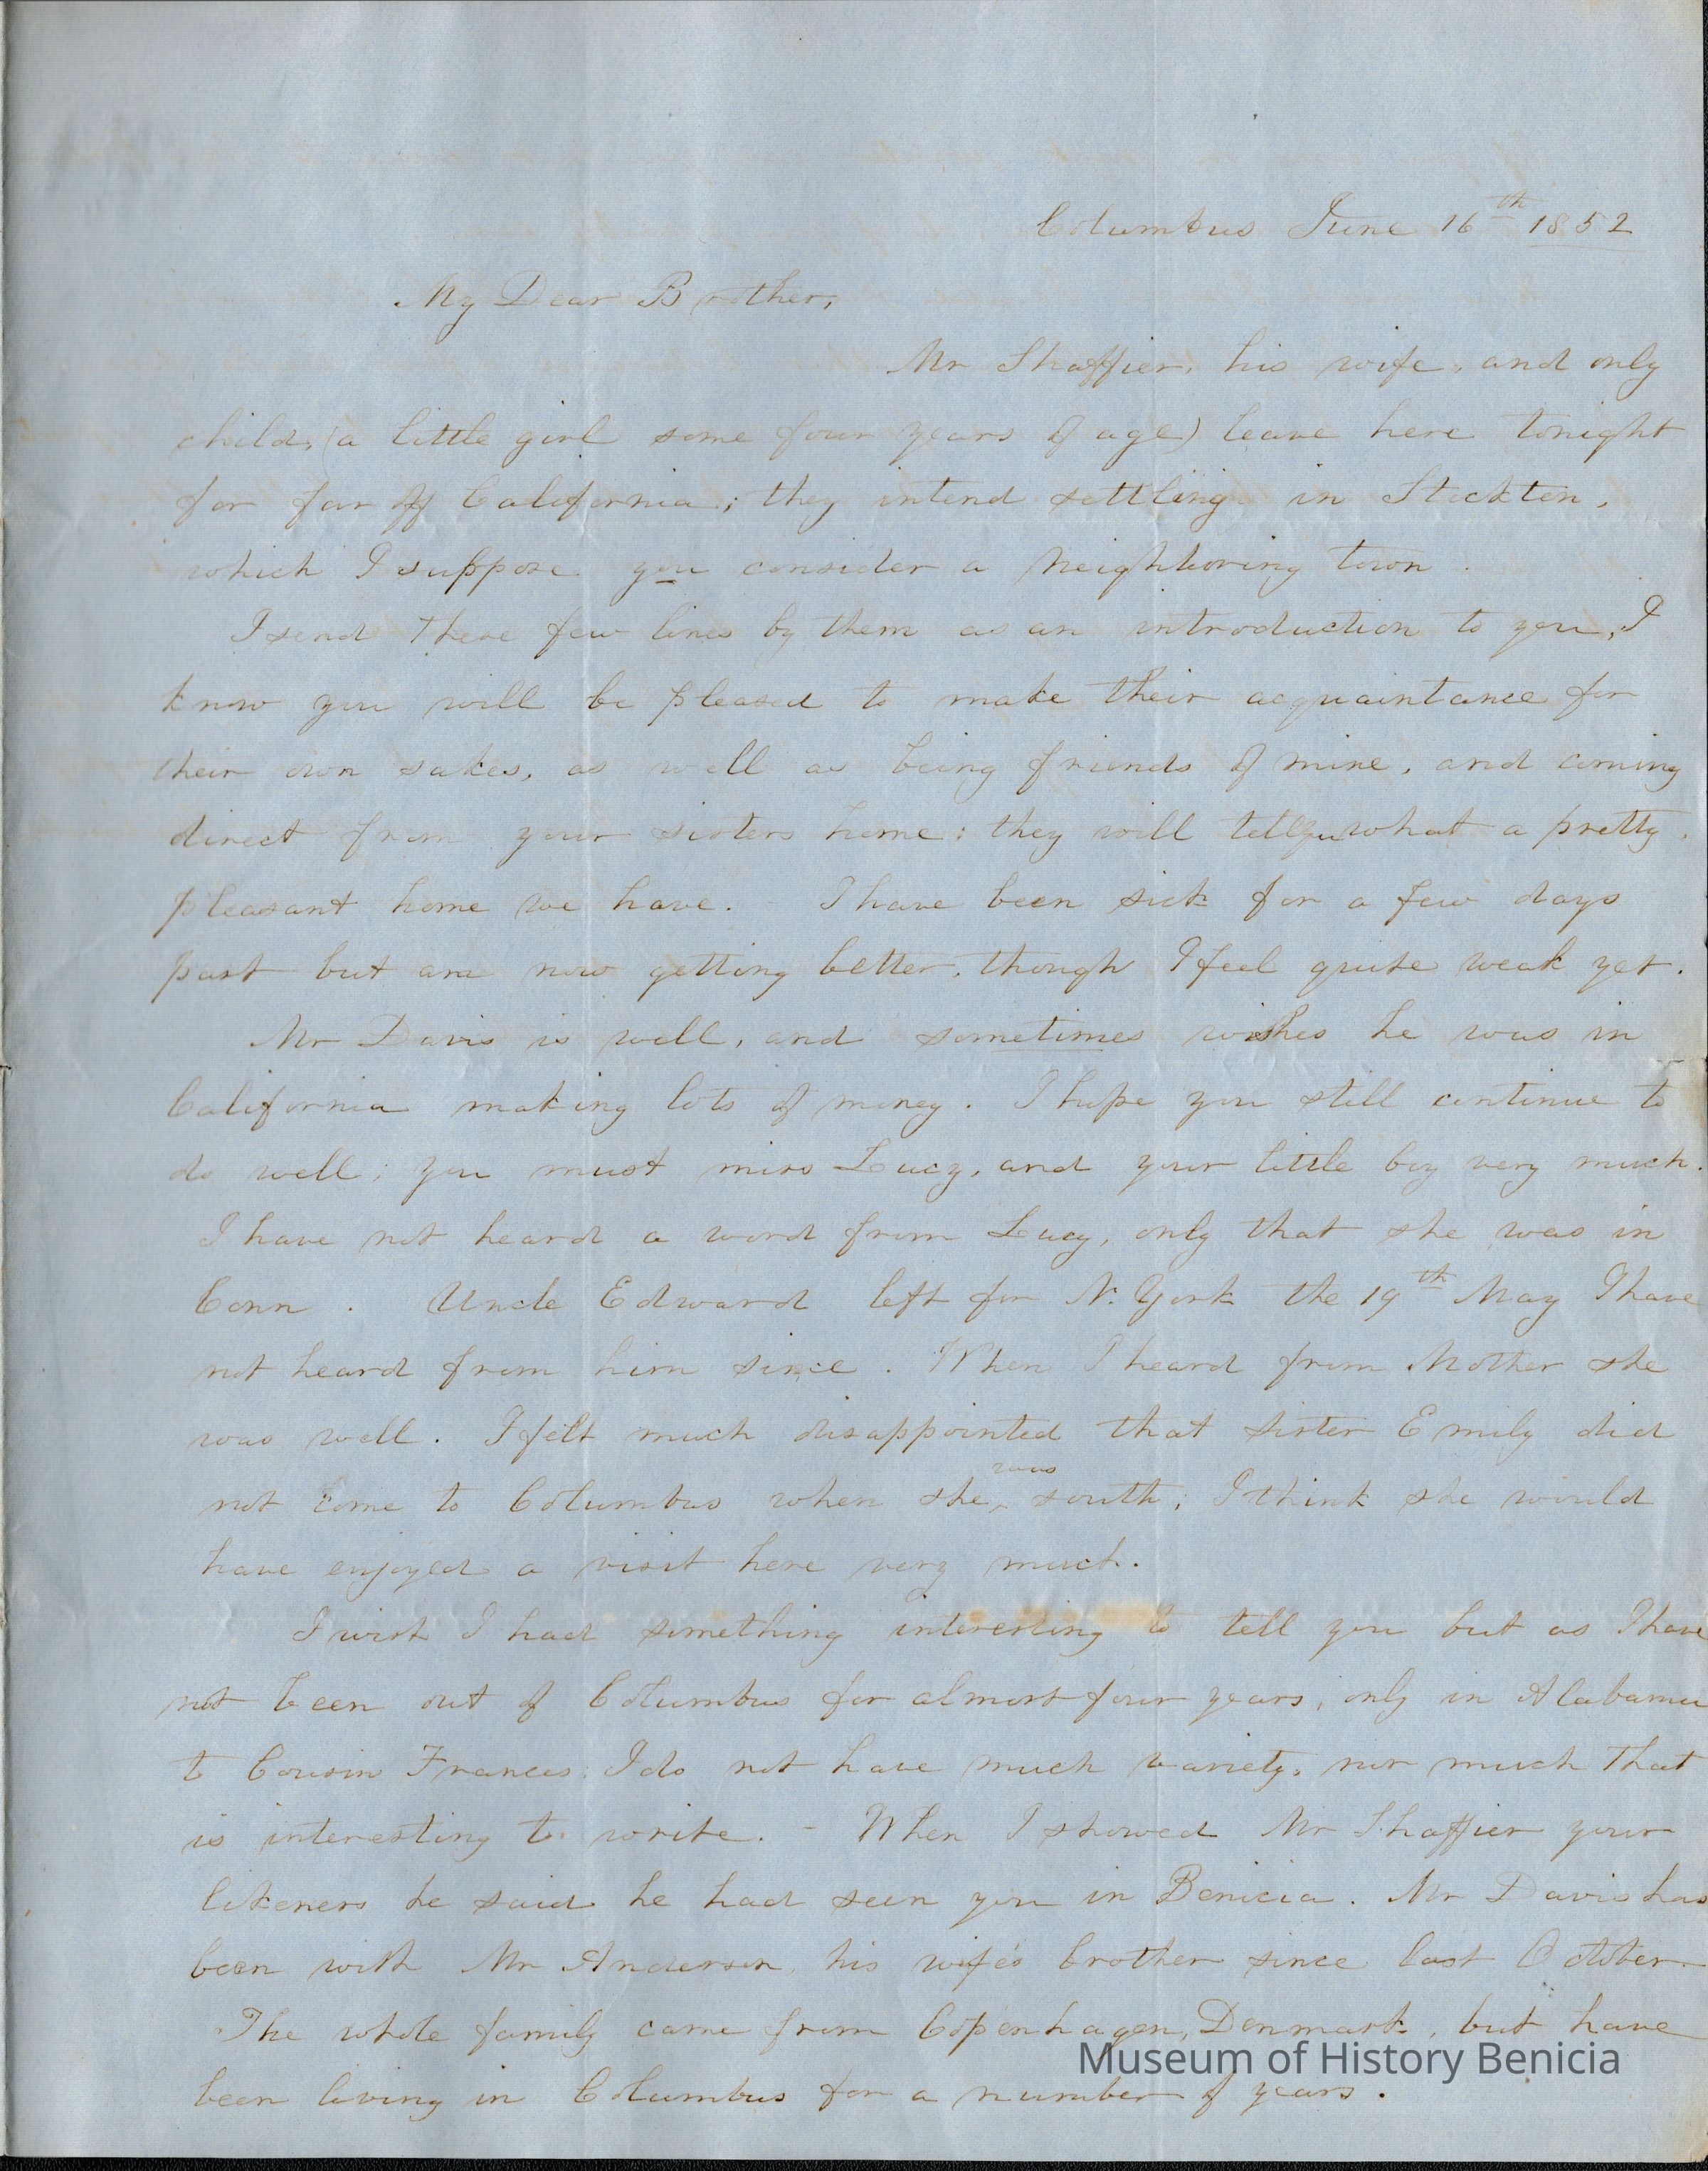 Columbus June 16th 1852
My Dear Brother,
Mr Shaffier, his wife, and only
child, (a little girl some four years of age) leave here tonight
for far off California; they intend settling in Stockton,
which I suppose you consider a neighboring town.
I send these few lines by them as an introduction to you, I
know you will be pleased to make their acquaintance for
their own sakes, as well as being friends of mine, and coming
direct from your sisters home: they will tell you what a pretty
pleasant home we have. I have been sick for a few days
past but am now getting better, though I feel quite weak yet.
Mr Davis is well, and sometimes wishes he was in
California making lots of money. I hope you still continue to
do well; you must miss Lucy, and your little boy very much.
I have not heard a word from Lucy, only that she was in
Conn. Uncle Edward left for N. York the 19th May I have
not heard from him since. When I heard from Mother she
was well. I felt much disappointed that sister Emily did
not come to Columbus when she was south; I think she would
have enjoyed a visit here very much.
I wish I had something interesting to tell you but as I have
not been out of Columbus for almost four years, only in Alabama
to Cousin Frances. I do not have much variety, nor much that
is interesting to write. - When I showed Mr Shaffier your
likeness he said he had seen you in Benicia. Mr Davis has
been with Mr Anderson, his wife's brother since last October.
The whole family came from Copenhagen, Denmark, but have
been living in Columbus for a number of years.
Museum of History Benicia